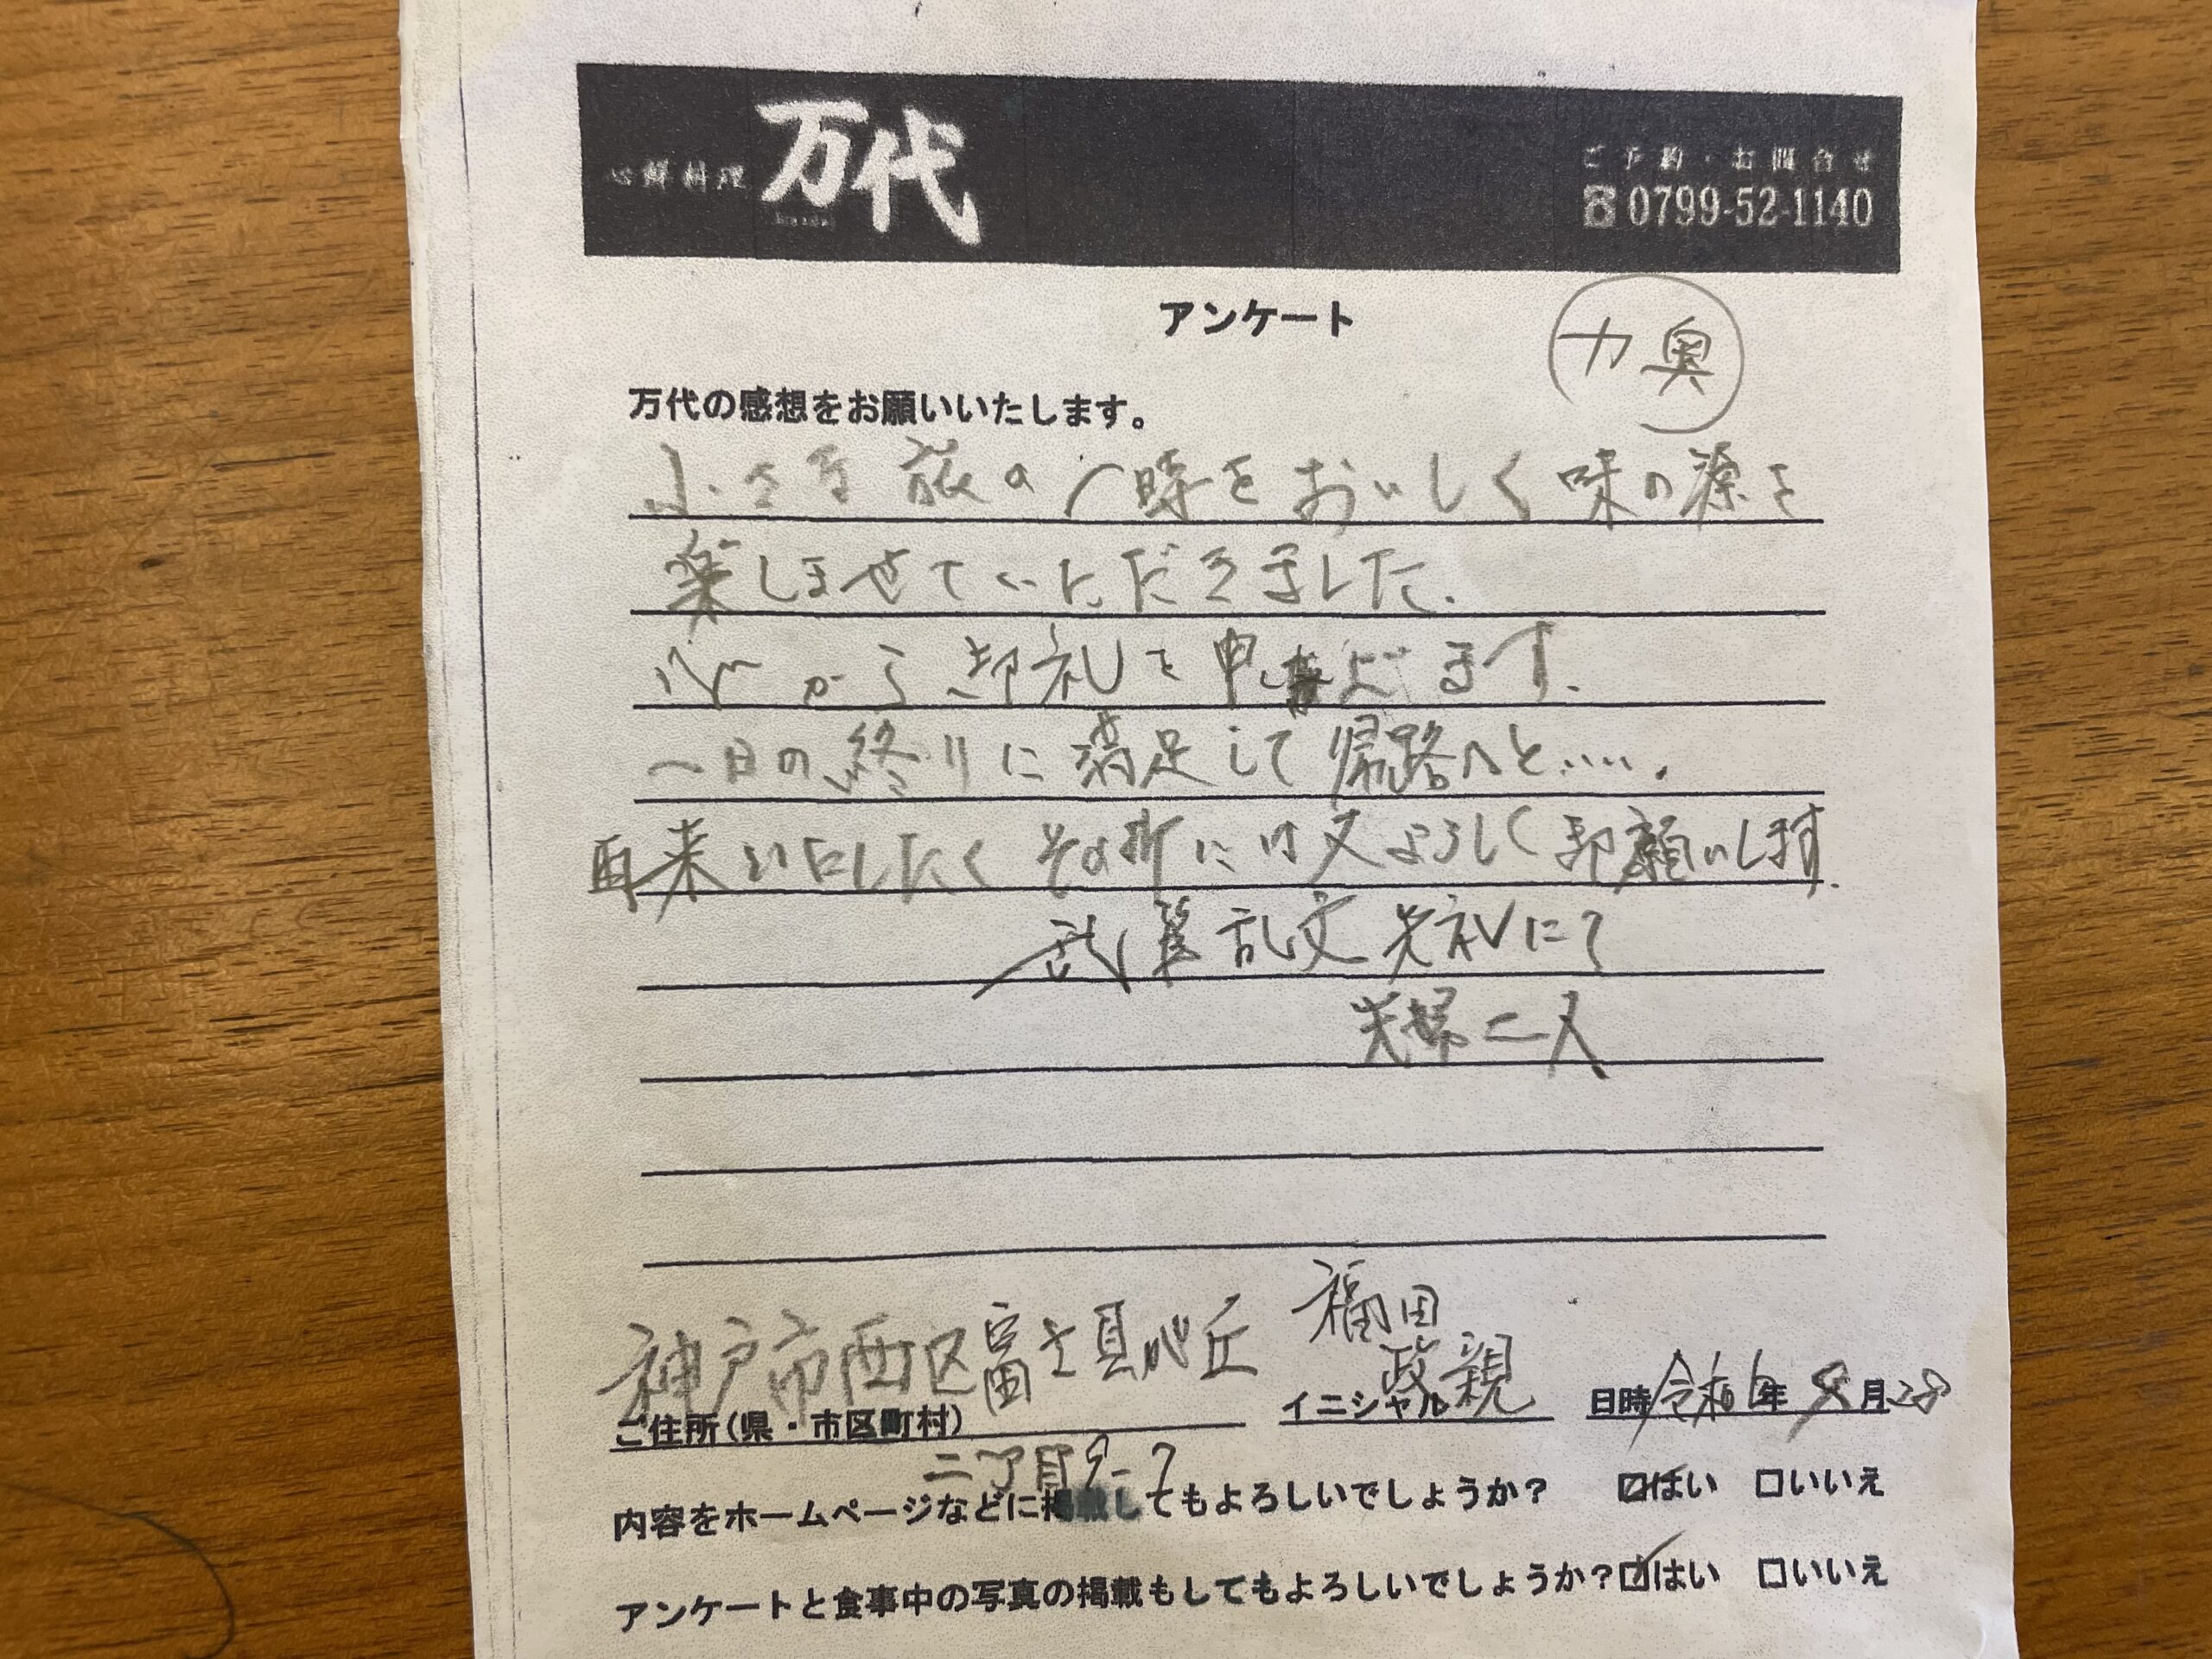 心鮮料理 万代
ご予約・お問合せ
☎0799-52-1140
アンケート
カ奥
万代の感想をお願いいたします。
小さき旅の一時をおいしく味の源を
楽しませていただきました.
心から御礼を申し上げます.
一日の終りに満足して帰路へと.....
再来い口したくその折には又よろしく御願いします.
乱筆乱文失礼にて
夫婦二人
神戸市西区富士見が丘
福田
政親
ご住所(県・市区町村)
イニシャル
日時 令和6年 9月28
二丁目9-7
内容をホームページなどに掲載してもよろしいでしょうか? ☑はい □いいえ
アンケートと食事中の写真の掲載もしてもよろしいでしょうか?☑はい □いいえ